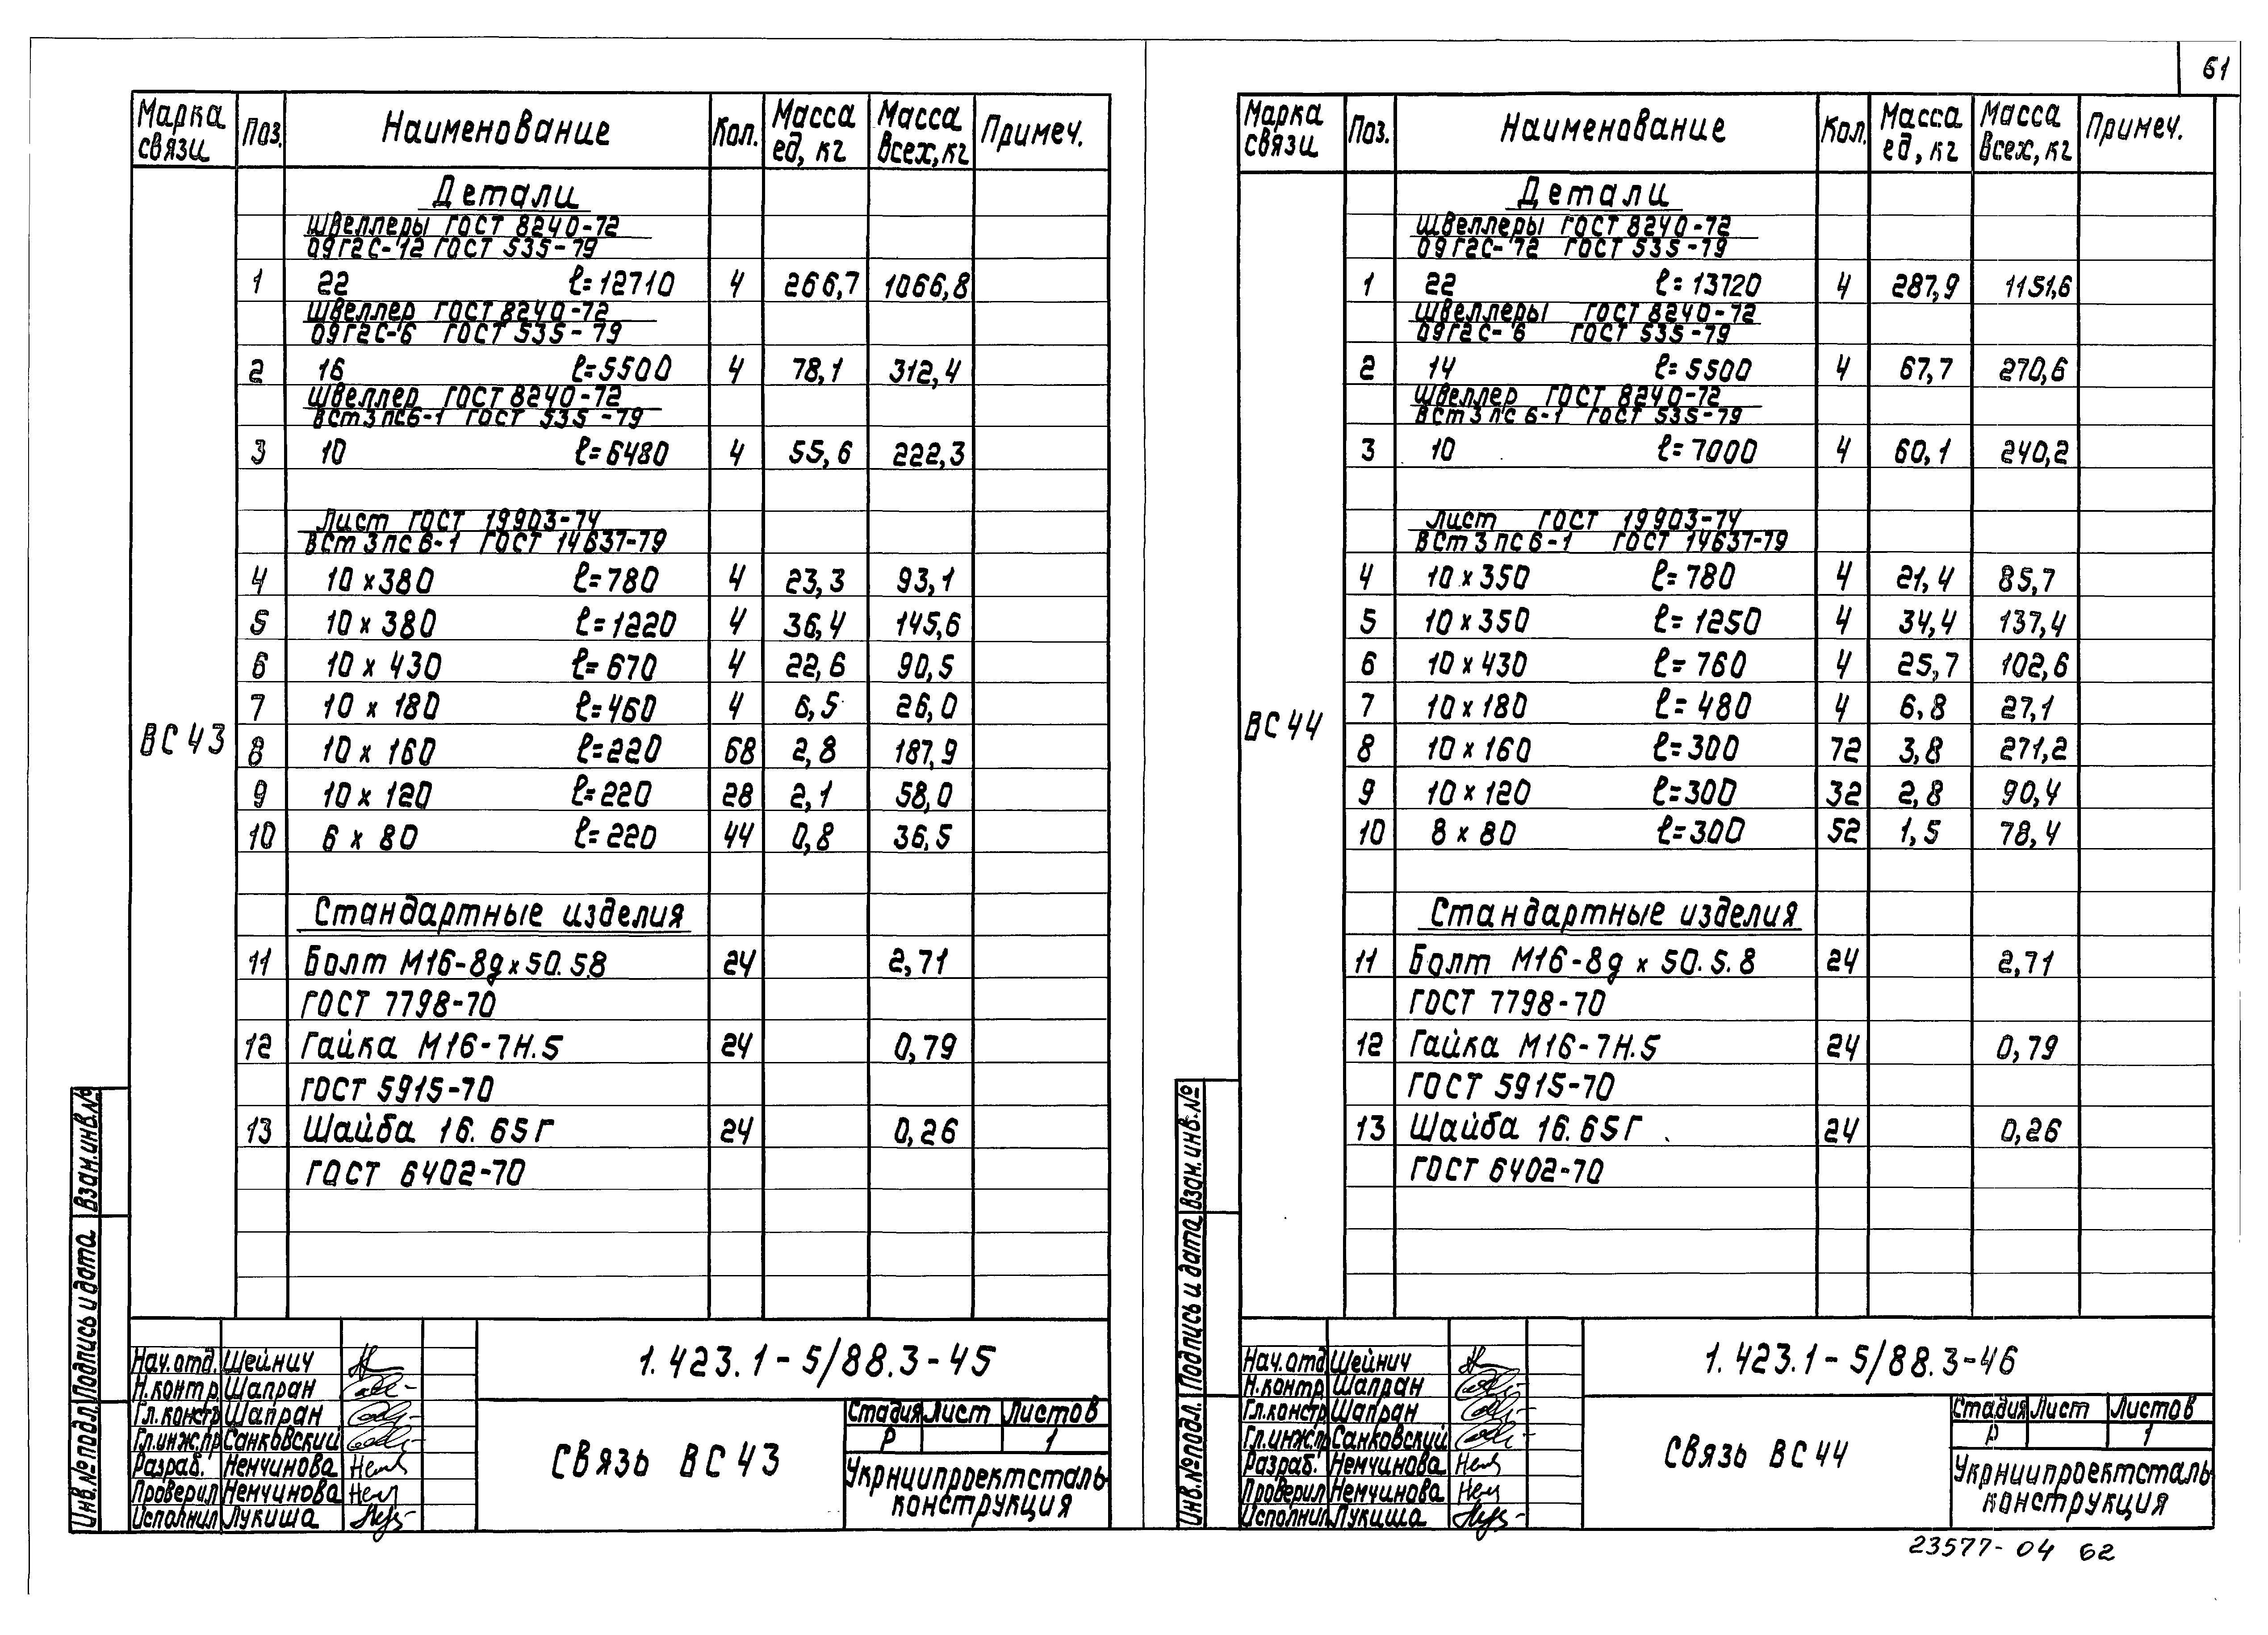 61
Марка связи Поз. Наименование Кол. Масса ед, кг Масса всех, кг Примеч.
Детали
Швеллеры ГОСТ 8240-72
09Г2С-12 ГОСТ 535-79
1 22 ℓ=12710 4 266,7 1066,8
Швеллер ГОСТ 8240-72
09Г2С-6 ГОСТ 535-79
2 16 ℓ=5500 4 78,1 312,4
Швеллер ГОСТ 8240-72
ВСт3пс6-1 ГОСТ 535-79
3 10 ℓ=6480 4 55,6 222,3
Лист ГОСТ 19903-74
ВСт3пс6-1 ГОСТ 14637-79
4 10х380 ℓ=780 4 23,3 93,1
5 10х380 ℓ=1220 4 36,4 145,6
6 10х430 ℓ=670 4 22,6 90,5
7 10х180 ℓ=460 4 6,5 26,0
ВС43
8 10х160 ℓ=220 68 2,8 187,9
9 10х120 ℓ=220 28 2,1 58,0
10 6х80 ℓ=220 44 0,8 36.5
Стандартные изделия
11 Болт М16-8gх50.58 24 2,71
ГОСТ 7798-70
12 Гайка М16-7Н.5 24 0,79
ГОСТ 5915-70
13 Шайба 16.65Г 24 0,26
ГОСТ 6402-70
Инв.№подл. Подпись и дата Взам.инв.№
Нач.отд. Шейнич
Н.контр Шапран
Гл.констр Шапран
Гл.инж.пр Санковский
Разраб. Немчинова
Проверил Немчинова
Исполнил Лукиша
1.423.1-5/88.3-45
Связь ВС43
Стадия Лист Листов
Р 1
Укрниипроектсталь-
конструкция
Марка связи Поз. Наименование Кол. Масса ед, кг Масса всех, кг Примеч.
Детали
Швеллеры ГОСТ 8240-72
09Г2С-12 ГОСТ 535-79
1 22 ℓ=13720 4 287,9 1151,6
Швеллеры ГОСТ 8240-72
09Г2С-6 ГОСТ 535-79
2 14 ℓ=5500 4 67,7 270,6
Швеллер ГОСТ 8240-72
ВСт3пс6-1 ГОСТ 535-79
3 10 ℓ=7000 4 60,1 240,2
Лист ГОСТ 19903-74
ВСт3пс6-1 ГОСТ 14637-79
4 10х350 ℓ=780 4 21,4 85,7
5 10х350 ℓ=1250 4 34,4 137,4
6 10х430 ℓ=760 4 25,7 102,6
7 10х180 ℓ=480 4 6,8 27,1
ВС44
8 10х160 ℓ=300 72 3,8 271,2
9 10х120 ℓ=300 32 2,8 90,4
10 8х80 ℓ=300 52 1,5 78,4
Стандартные изделия
11 Болт М16-8gх50.5.8 24 2,71
ГОСТ 7798-70
12 Гайка М16-7Н.5 24 0,79
ГОСТ 5915-70
13 Шайба 16.65Г 24 0,26
ГОСТ 6402-70
Инв.№подл. Подпись и дата Взам.инв.№
Нач.отд Шейнич
Н.контр Шапран
Гл.констр Шапран
Гл.инж.п Санковский
Разраб. Немчинова
Проверил Немчинова
Исполнил Лукиша
1.423.1-5/88.3-46
Связь ВС44
Стадия Лист Листов
Р 1
Укрниипроектсталь
конструкция
23577-04 62